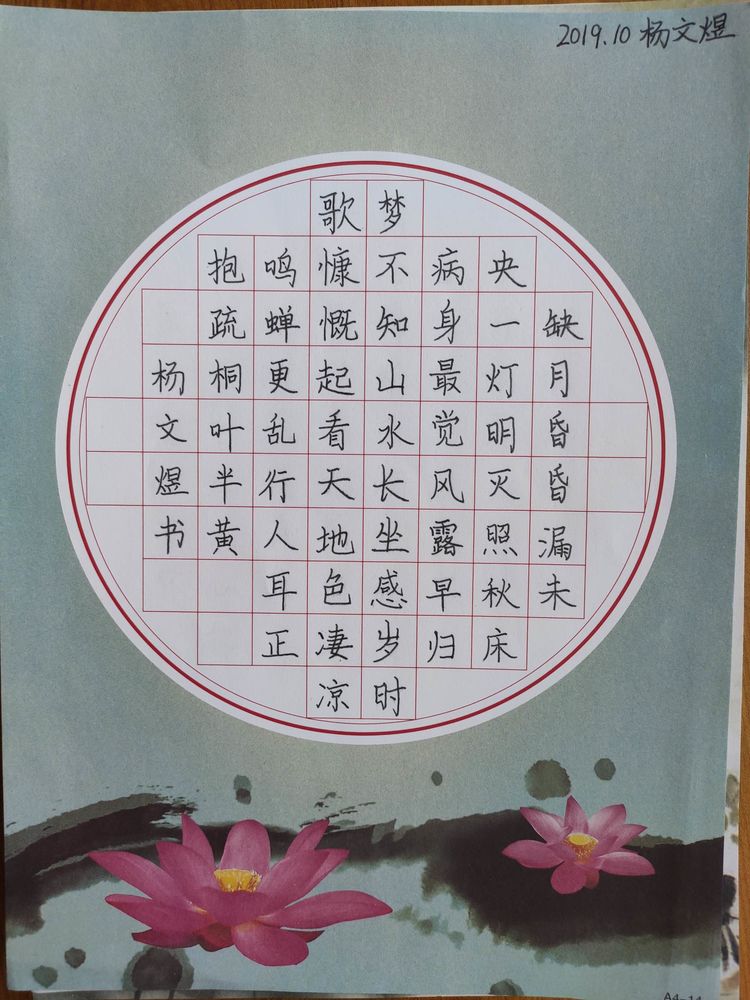 2019.10 杨文煜
缺月昏昏漏未
央一灯明灭照秋床
病身最觉风露早归
梦不知山水长坐感岁时
歌慷慨起看天地色凄凉
鸣蝉更乱行人耳正
抱疏桐叶半黄
杨文煜书